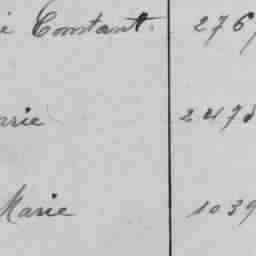 ie Constant. 276
arie 2478
Marie 1039